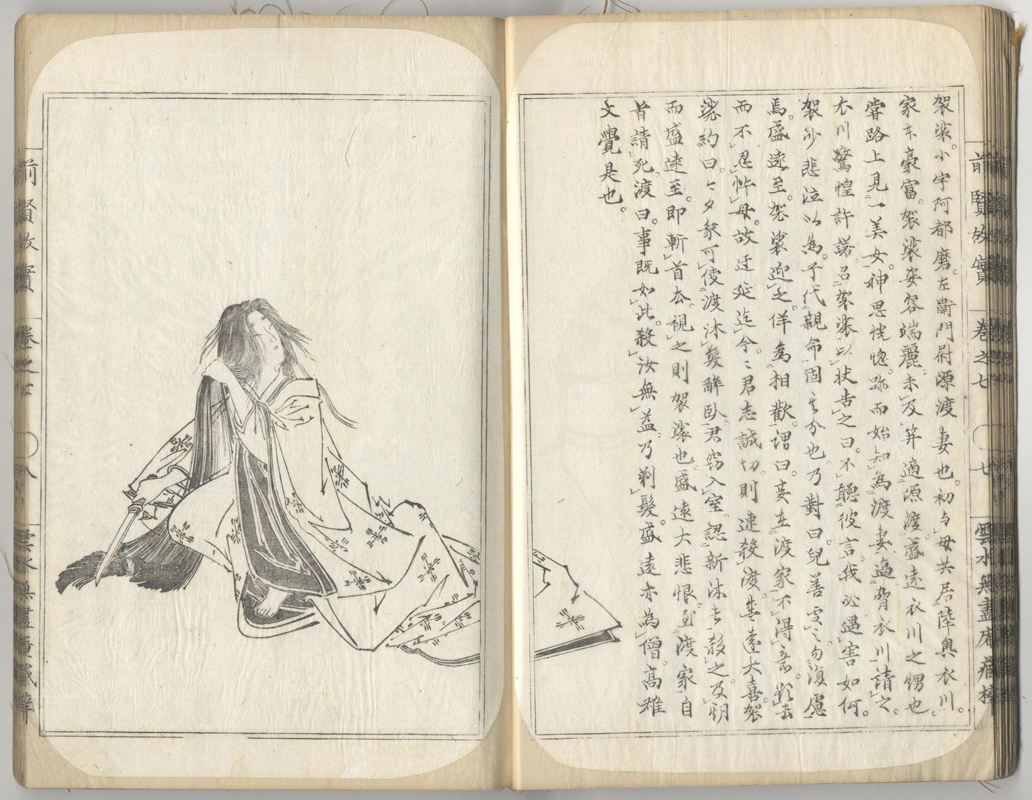 袈裟。小字阿都磨。左衛門尉源渡妻也。初与母共居陸奥衣川。
家本豪富。袈裟姿容端麗。未及笄適源渡。盛遠衣川之甥也。
甞路上見一美女。神思恍惚。跡而始知為渡妻。過脅衣川請之。
衣川驚惶許諾。召袈裟以状告之曰。不聴彼言。我必遇害如何。
袈裟悲泣以為。代親命固其分也。乃對曰。兒善處之。勿復慮
焉。盛遠至。袈裟迎之。佯為相歡。謂曰。妾在渡家不得意。欲去
而不忍忤母。故迂延迄今。今君志誠切。則速殺渡。盛遠大喜。袈
裟約曰。今夕我可使渡沐髮醉臥。君窃入室。認新沐者殺之。及期
而盛遠至。即斬首去。視之則袈裟也。盛遠大悲恨。至渡家自
首請死。渡曰。事既如此。殺汝無益。乃剃髮。盛遠亦為僧。高雄
文覺是也。
前賢故實
卷之七
前賢故實
卷之七